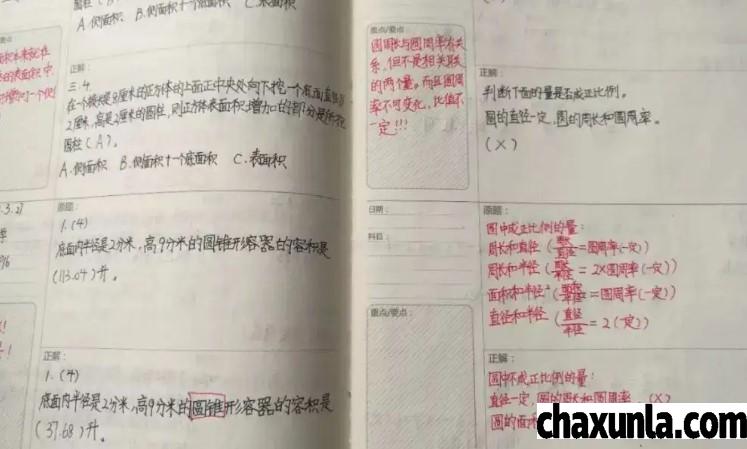 A.侧面积 B.侧面积+一个底面积 C.表面积
正解:
三.4.
在一个棱长是3厘米的正方体的上面正中央处向下挖一个底面直径
2厘米,高是2厘米的圆柱,则正方体表面积增加的部分是
圆柱(A)。
A.侧面积 B.侧面积+一个底面积 C.表面积
原题:
1.(4)
底面内半径是2分米,高9分米的圆锥形容器的容积是
(113.04)升。
正解:
1.(4)
底面内半径是2分米,高9分米的圆锥形容器的容积是
(37.68)升。
重点/要点:
圆周长与圆周率有关
系,但不是相关联
的两个量。而且圆周
率不可变化,比值不
一定!!!
日期:
科目:
重点/要点:
正解:
判断下面的量是否成正比例。
圆的直径一定,圆的周长和圆周率。
(X)
原题:
圆中成正比例的量:
周长和直径(周长/直径=圆周率(一定))
周长和半径(周长/半径=2×圆周率(一定))
面积和半径²(面积/半径²=圆周率(一定))
直径和半径(直径/半径=2(一定))
正解:
圆中不成正比例的量:
直径一定,圆的周长和圆周率。(X)
圆的面积
chaxunla.com